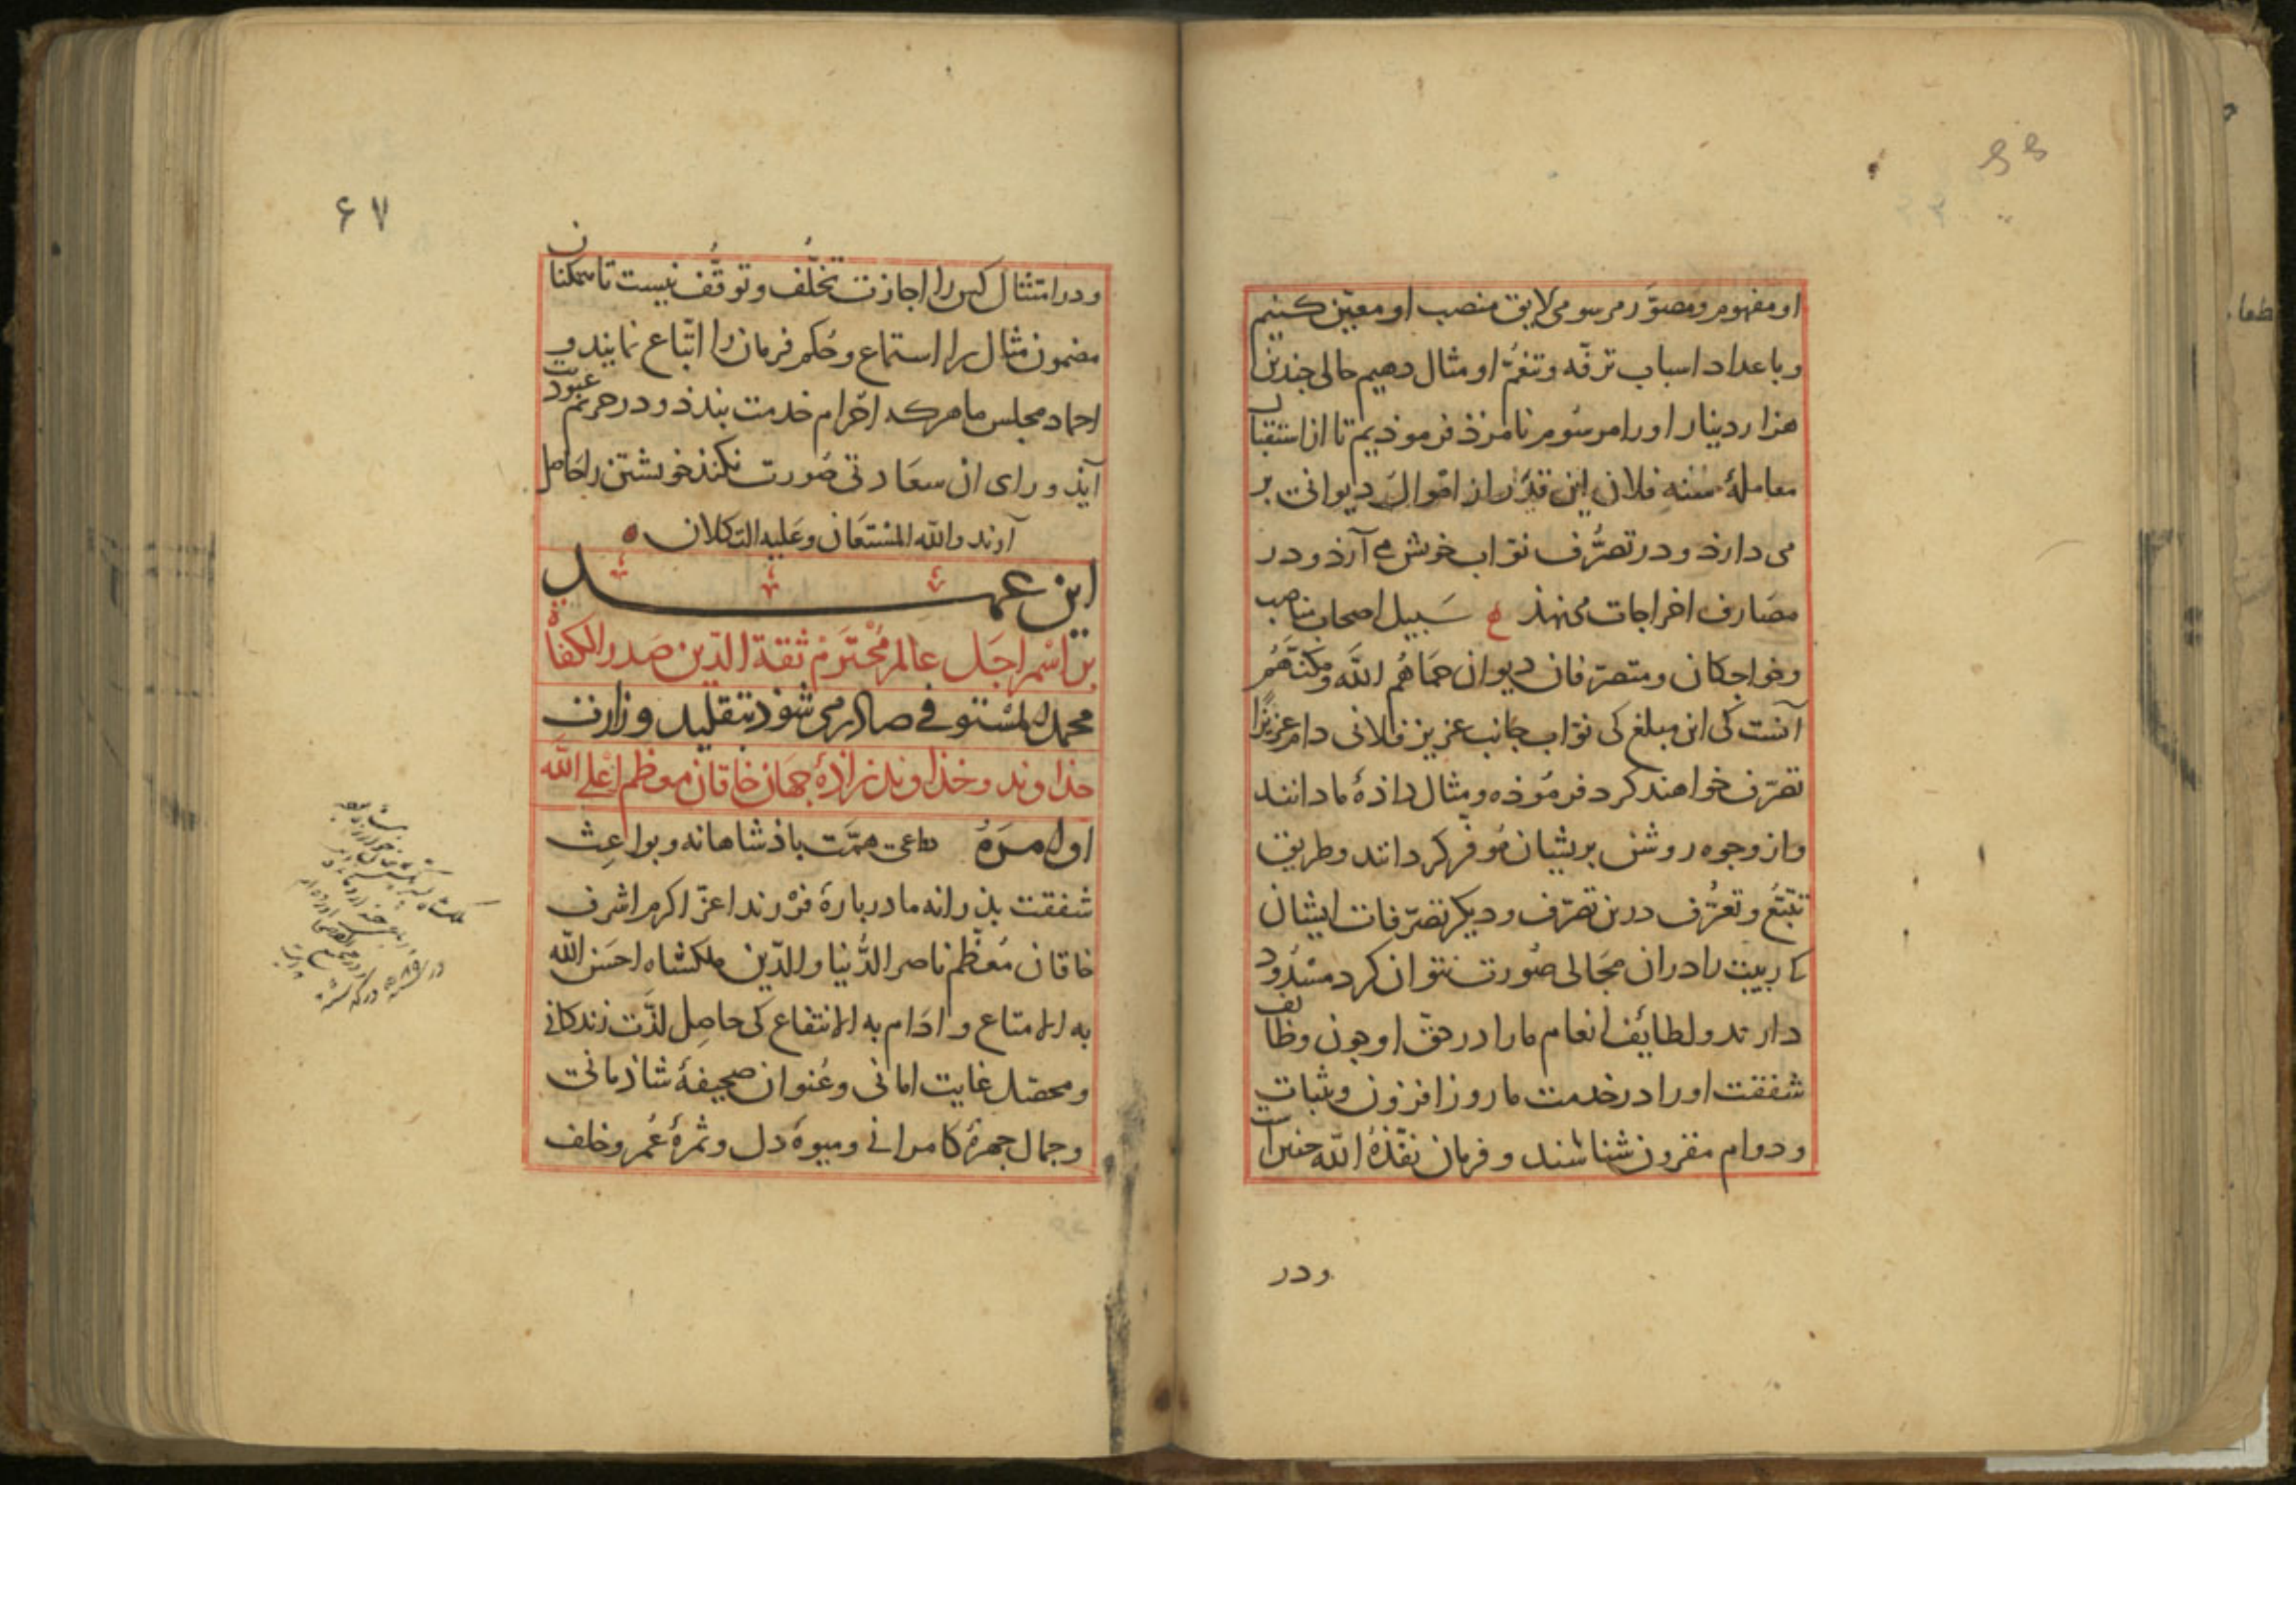 ۶۶
او مفهوم و مصوّر مرسومی لایق منصب او معیّن کنیم
و باعداد اسباب ترفّه و تنعّم او مثال دهیم حالی چندین
هزار دینار او را مرسوم نامزذ فرموذیم تا از استقبال
معاملهٔ سنه فلان این قدر از اموال دیوانی بر
می دارذ و در تصرّف نوّاب خویش می آرذ و در
مصارف اخراجات می نهذ سبیل اصحاب مناصب
و خواجکان و متصرّفان دیوان حماهم الله و مکنتهم
آنست کی این مبلغ کی نوّاب جانب عزیز فلانی دام عزیزًا
تصرّف خواهند کرد فرموذه و مثال داذهٔ ما دانند
و از وجوه روشن بریشان موفّر کردانند و طریق
تتبّع و تعرّف درین تصرّف و دیکر تصرّفات ایشان
کی ریبت را در ان مجالی صورت نتوان کرد مسدود
دارند و لطایف انعام ما را در حقّ او چون وظایف
شفقت او را در خدمت ما روز افزون و ثبات
و دوام مقرون شناسند و فرمان نفّذهٔ الله چنین است
ودر
۶۷
و در امتثال کس را اجازت تخلّف و توقّف نیست تا همکنان
مضمون مثال را استماع و حکم فرمان را اتّباع نمایند و
احماد مجلس ما هرکه احرام خدمت بندذ و در حریم عبودیت
آیذ ورای ان سعادتی صورت نکند خویشتن را حاصل
آرند والله المستعان و علیه التکلان
این عهد
بر اسم اجل عالم محترم ثقة الدّین صدر الکفاة
محمد المستوفی صادر می شوذ بتقلید وزارت
خذاوند و خذاوندزاذهٔ جهان خاقان معظم اعلی الله
اوامره دواعی همّت باذشاهانه و بواعث
شفقت بذرانه ما در بارهٔ فرزند اعزّ اکرم اشرف
خاقان معظّم ناصر الدّنیا والدّین ملکشاه احسن الله
به الامتاع و ادام به الانتفاع کی حاصل لذّت زندکانی
و محصّل غایت امانی و عنوان صحیفهٔ شاذمانی
و جمال چهرهٔ کامرانی و میوهٔ دل و ثمرهٔ عمر و خلف